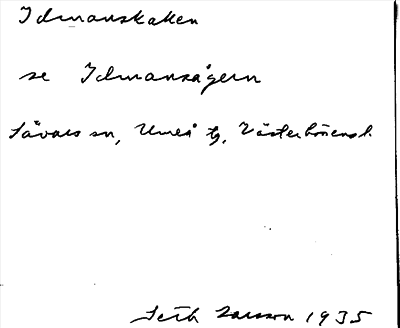 Idmanskallen
se Idmansågern
Sävars sn, Umeå tg, Västerbottens l.
Seth Larsson 1935